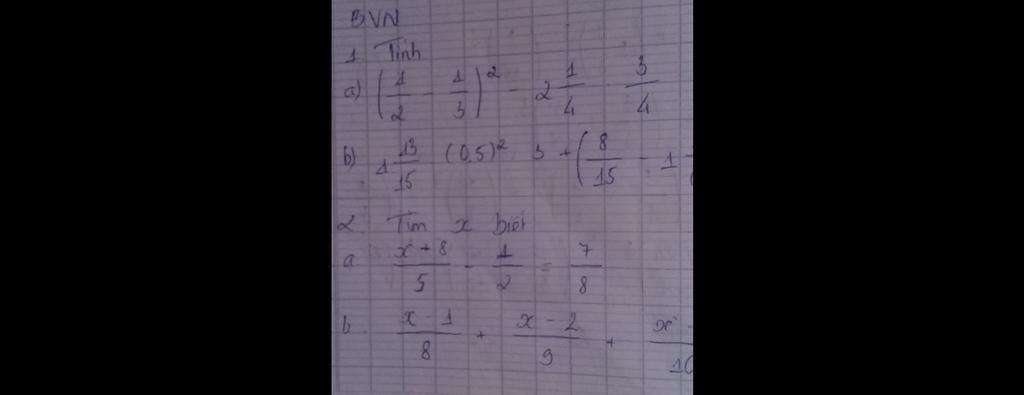 BVN
1 Tính
a) (1/2 - 1/3)² - 2 1/4 · 3/4
b) 1 13/15 · (0,5)² · 3 + (8/15 - 1
2 Tìm x biết
a (x + 8)/5 - 1/2 = 7/8
b. (x - 1)/8 + (x - 2)/9 + (x -)/10